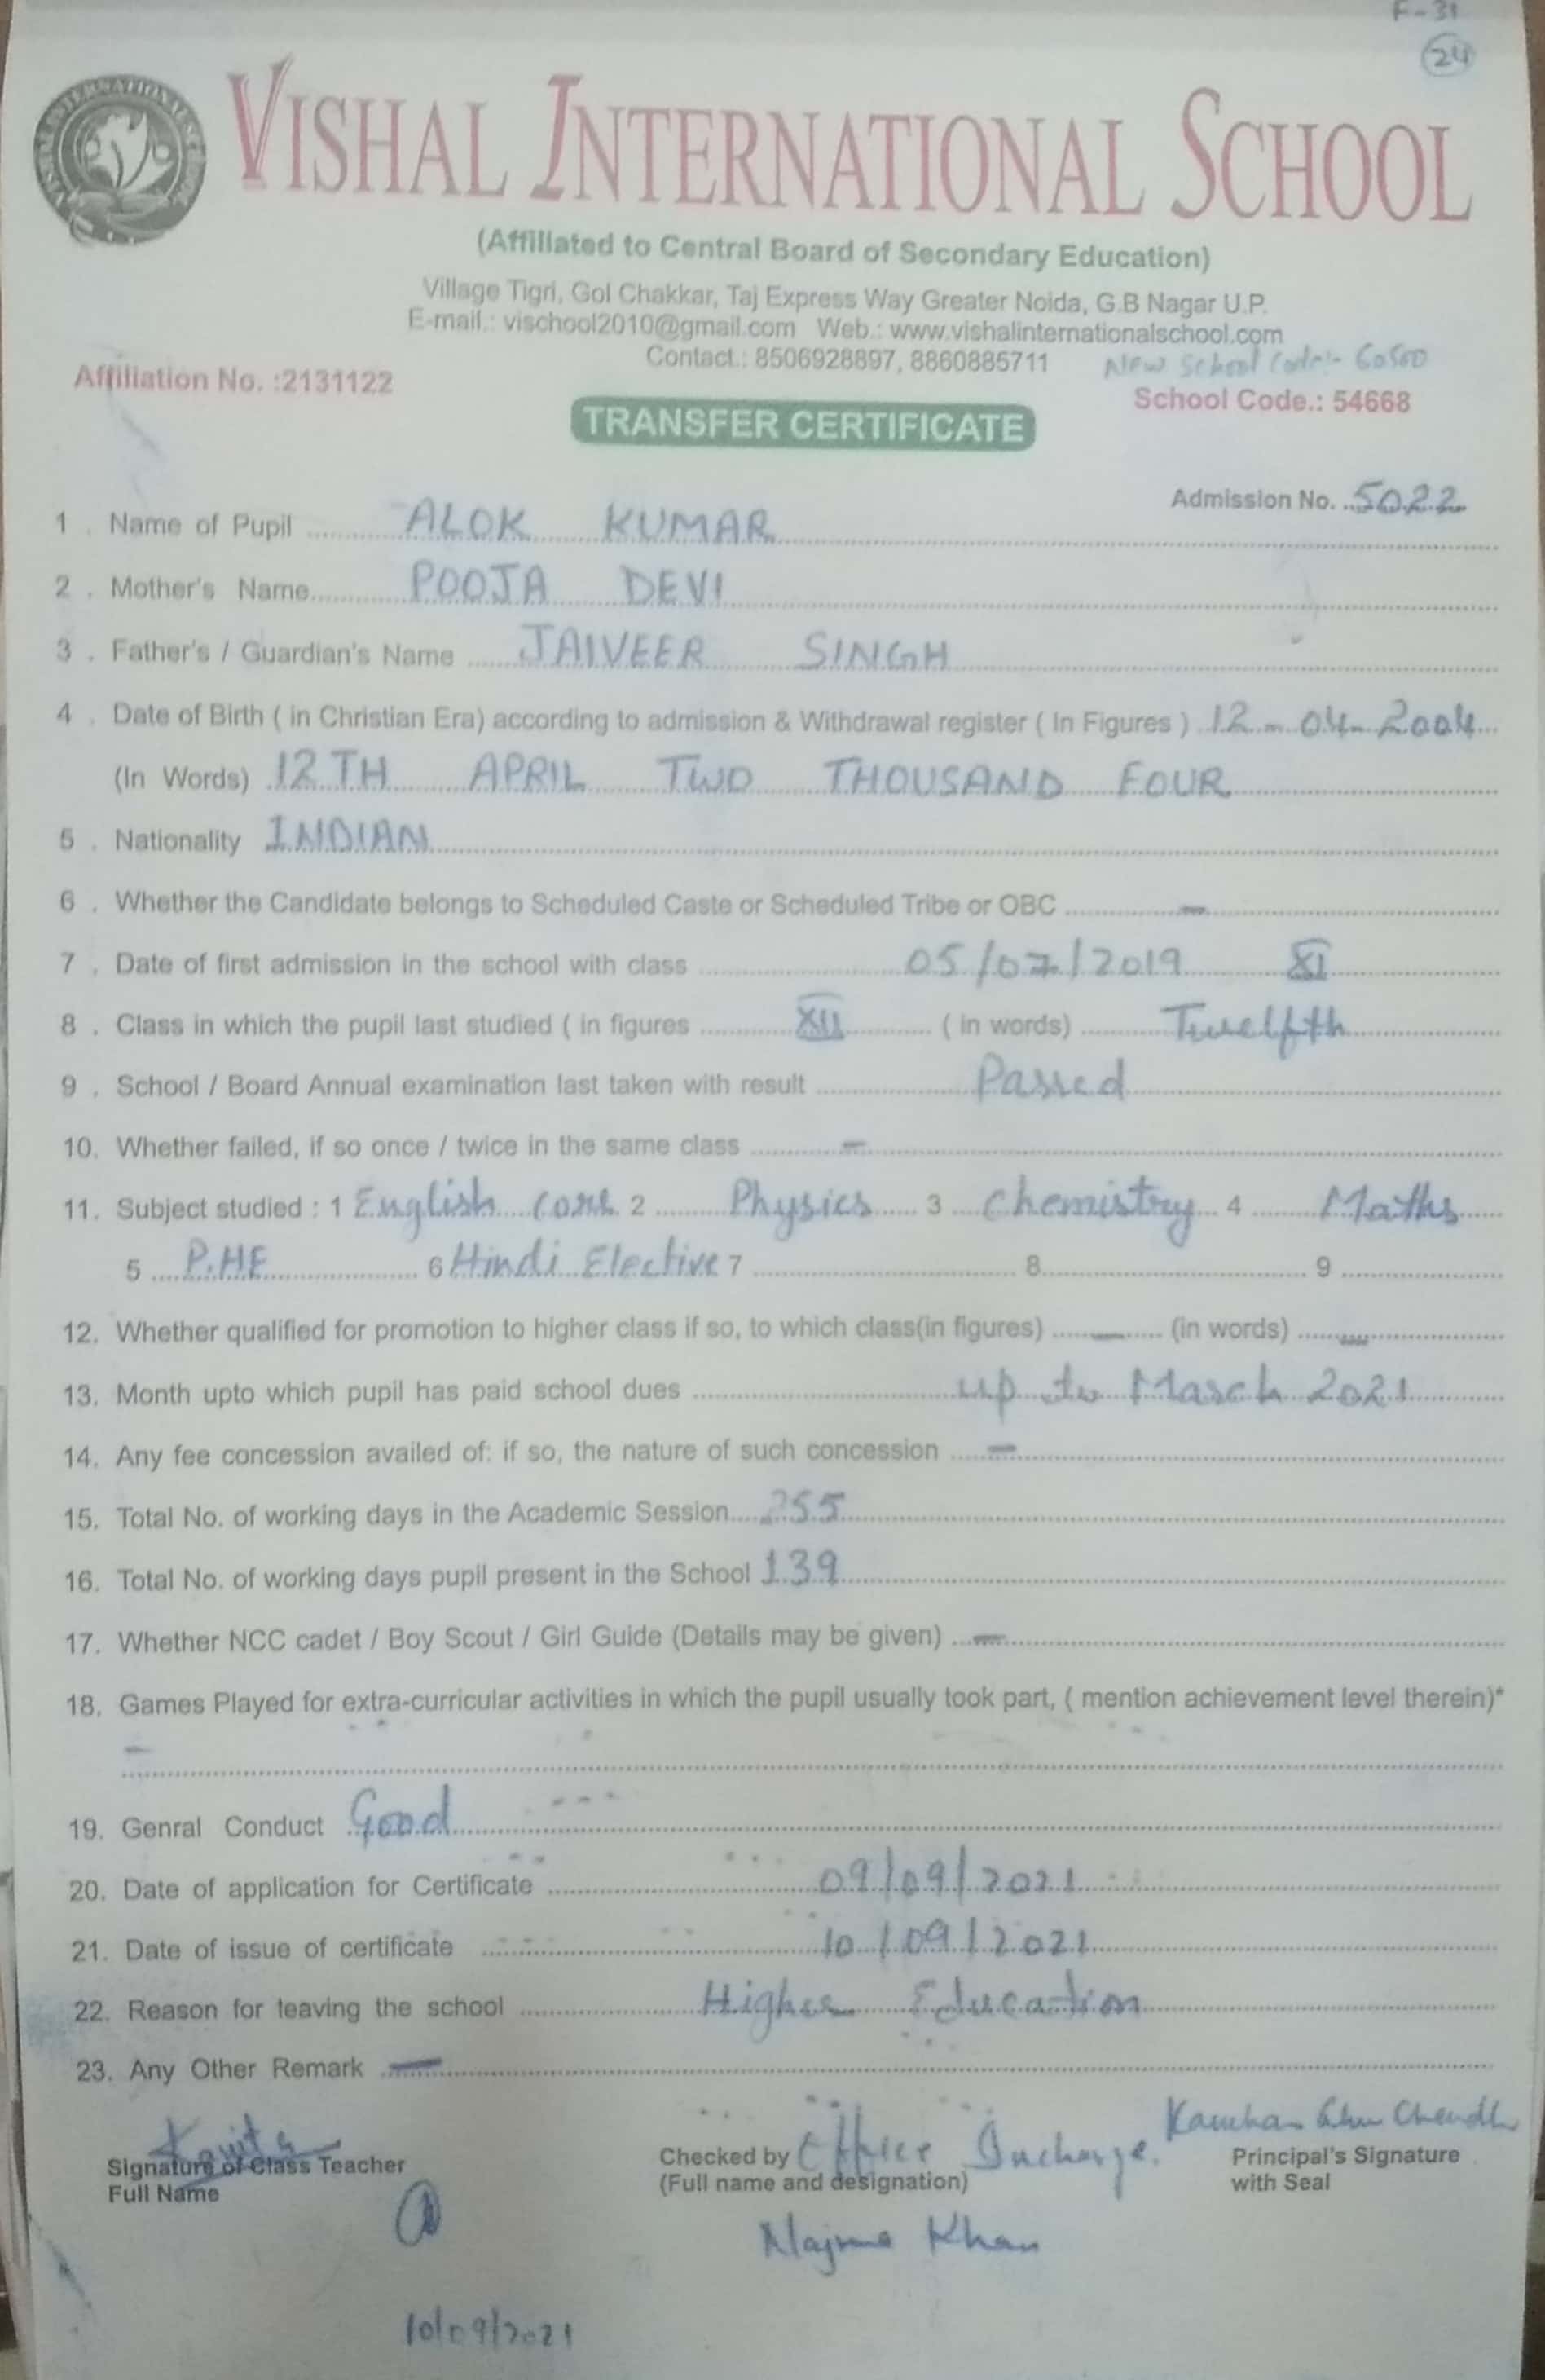 F-31
24
VISHAL INTERNATIONAL SCHOOL
(Affiliated to Central Board of Secondary Education)
Village Tigri, Gol Chakkar, Taj Express Way Greater Noida, G.B Nagar U.P.
E-mail.: vischool2010@gmail.com Web.: www.vishalinternationalschool.com
Contact.: 8506928897, 8860885711 New School Code:- 60500
Affiliation No. :2131122
School Code.: 54668
TRANSFER CERTIFICATE
Admission No. 5022
1 . Name of Pupil ALOK KUMAR
2 . Mother's Name POOJA DEVI
3 . Father's / Guardian's Name JAIVEER SINGH
4 . Date of Birth ( in Christian Era) according to admission & Withdrawal register ( In Figures ) 12-04-2004
(In Words) 12TH APRIL TWO THOUSAND FOUR
5 . Nationality INDIAN
6 . Whether the Candidate belongs to Scheduled Caste or Scheduled Tribe or OBC -
7 . Date of first admission in the school with class 05/07/2019 XI
8 . Class in which the pupil last studied ( in figures XII ( in words) Twelfth
9 . School / Board Annual examination last taken with result Passed
10. Whether failed, if so once / twice in the same class -
11. Subject studied : 1 English core 2 Physics 3 Chemistry 4 Maths
5 P.HE 6 Hindi Elective 7 8 9
12. Whether qualified for promotion to higher class if so, to which class(in figures) - (in words) -
13. Month upto which pupil has paid school dues up to March 2021
14. Any fee concession availed of: if so, the nature of such concession -
15. Total No. of working days in the Academic Session 255
16. Total No. of working days pupil present in the School 139
17. Whether NCC cadet / Boy Scout / Girl Guide (Details may be given) -
18. Games Played for extra-curricular activities in which the pupil usually took part, ( mention achievement level therein)*
-
19. Genral Conduct Good
20. Date of application for Certificate 09/09/2021
21. Date of issue of certificate 10/09/2021
22. Reason for leaving the school Higher Education
23. Any Other Remark -
Signature of Class Teacher
Full Name
Checked by Office Incharge.
(Full name and designation)
Najma Khan
Principal's Signature
with Seal
10/09/2021